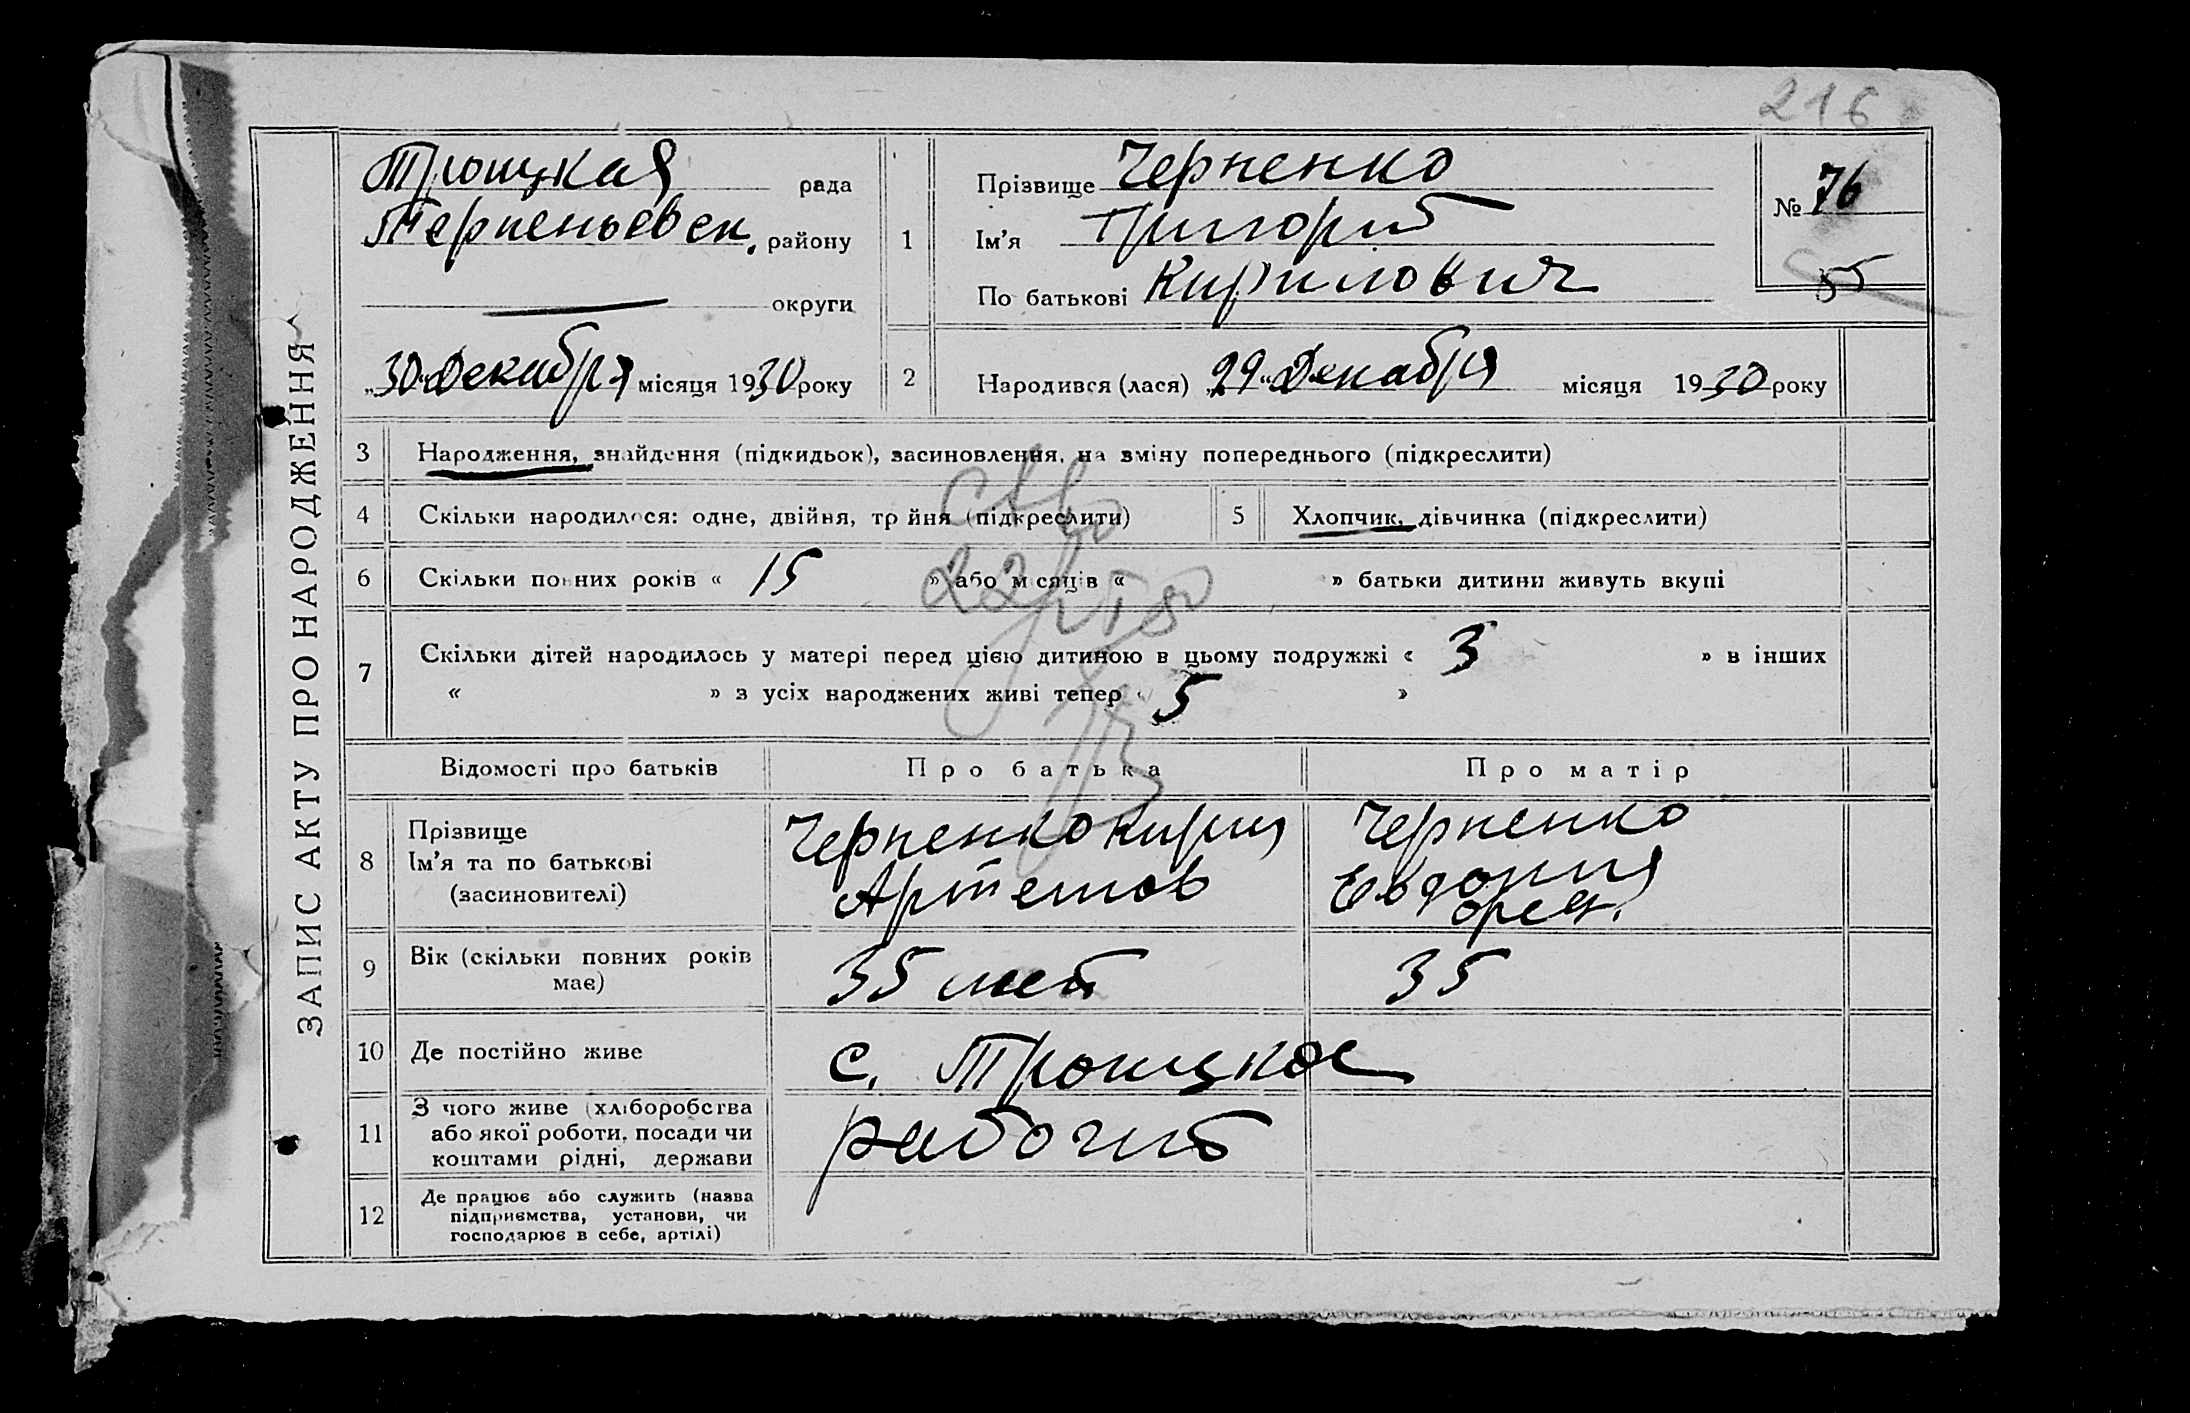 216
ЗАПИС АКТУ ПРО НАРОДЖЕННЯ
Троицкая рада
Терпеньевск. району
округи
„30" Декабря місяця 1930 року
1
Прізвище Черненко
Ім'я Григорий
По батькові Кирилович
№ 76
55
2 Народився (лася) „29" Декабря місяця 1930 року
3 Народження, знайдення (підкидьок), засиновлення, на зміну попереднього (підкреслити)
4 Скільки народилося: одне, двійня, трійня (підкреслити)
5 Хлопчик, дівчинка (підкреслити)
6 Скільки повних років « 15 » або місяців « » батьки дитини живуть вкупі
7 Скільки дітей народилось у матері перед цією дитиною в цьому подружжі « 3 » в інших
« » з усіх народжених живі тепер « 5 »
Відомості про батьків
Про батька
Про матір
8 Прізвище
Ім'я та по батькові
(засиновителі)
Черненко Кирил
Артемов
Черненко
Евдокия
9 Вік (скільки повних років
має)
35 лет
35
10 Де постійно живе
с. Троицкое
11 З чого живе (хліборобства
або якої роботи, посади чи
коштами рідні, держави
рабочий
12 Де працює або служить (назва
підприємства, установи, чи
господарює в себе, артілі)